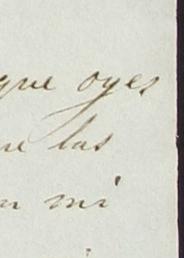 que oyes
las
mi